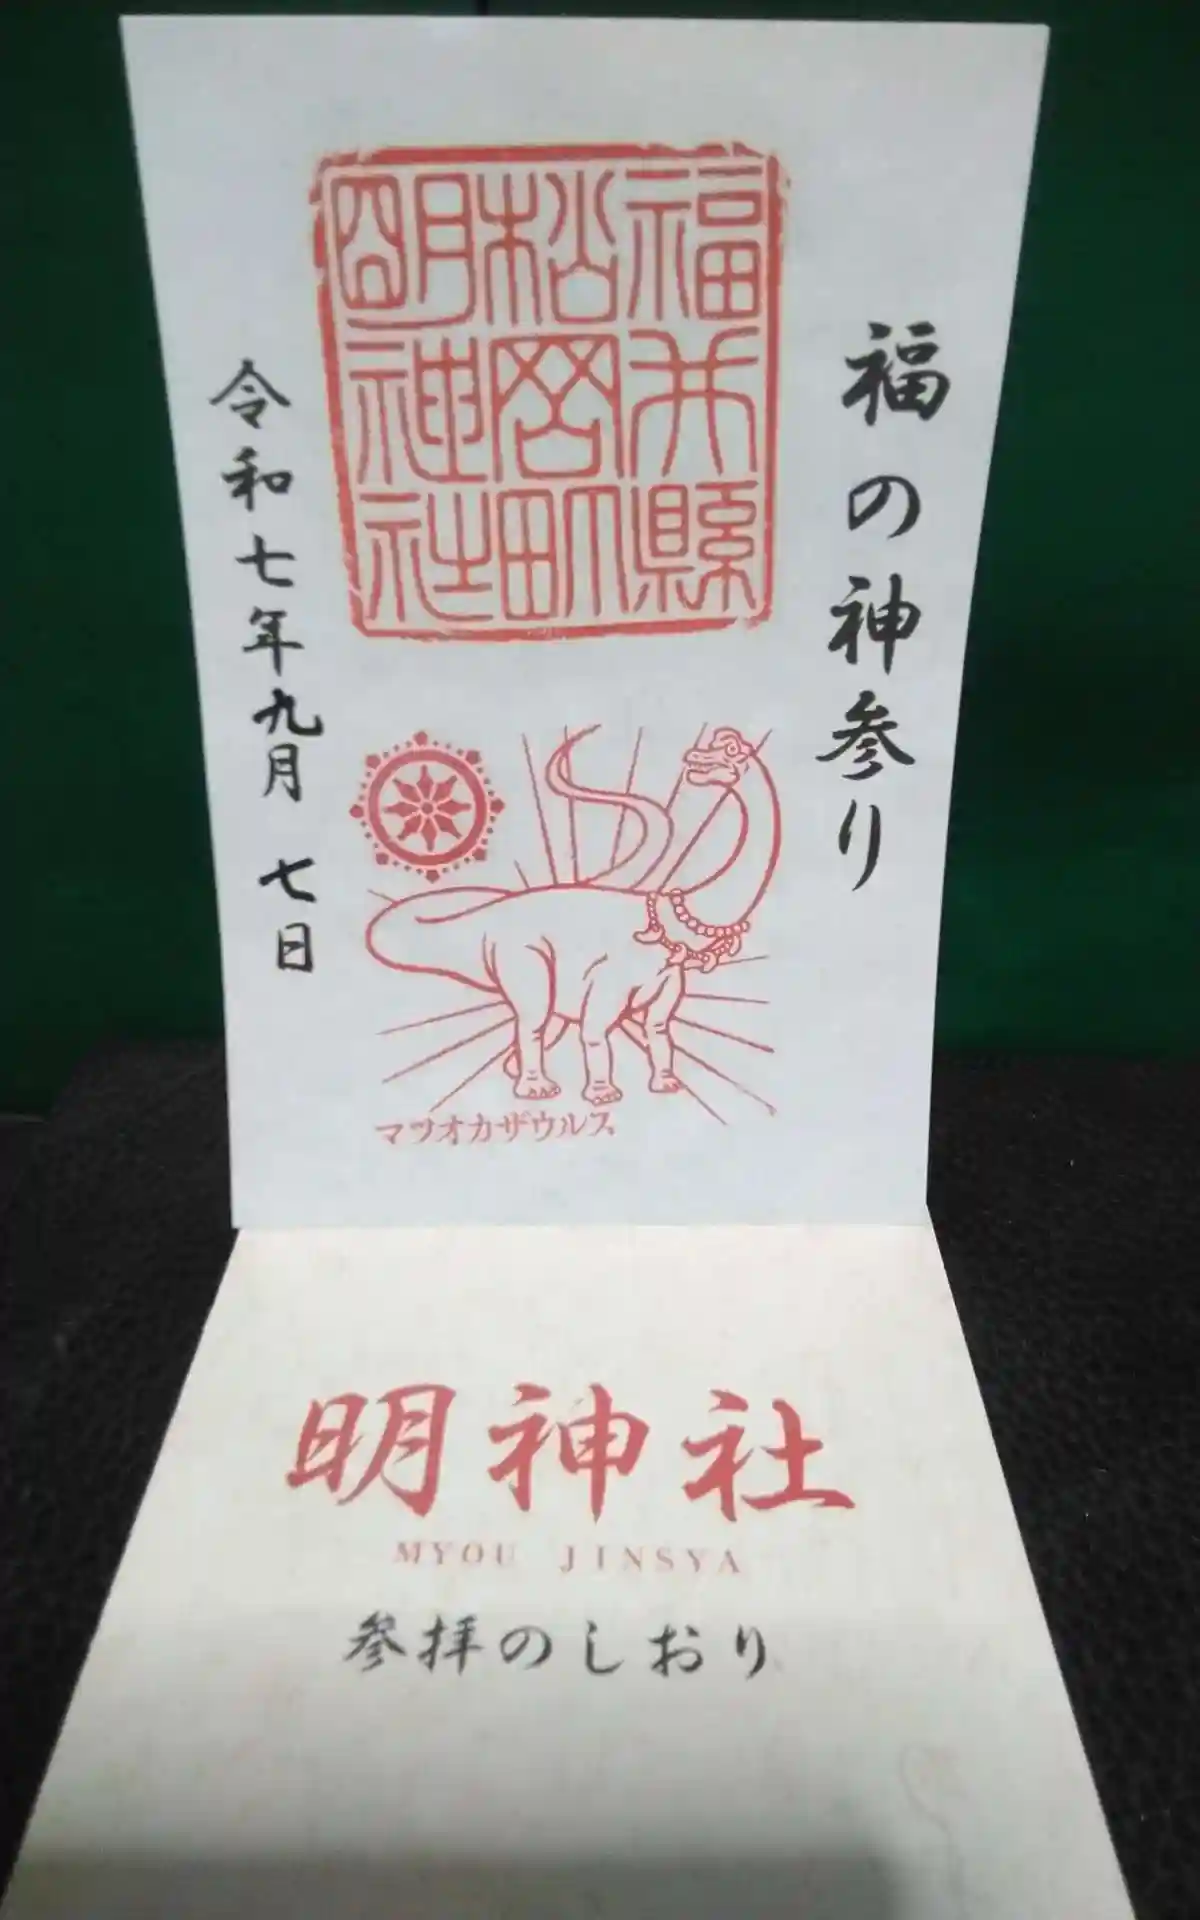 福の神参り
福井縣
松岡町
明神社
令和七年九月 七日
マツオカザウルス
明神社
MYOU JINSYA
参拝のしおり